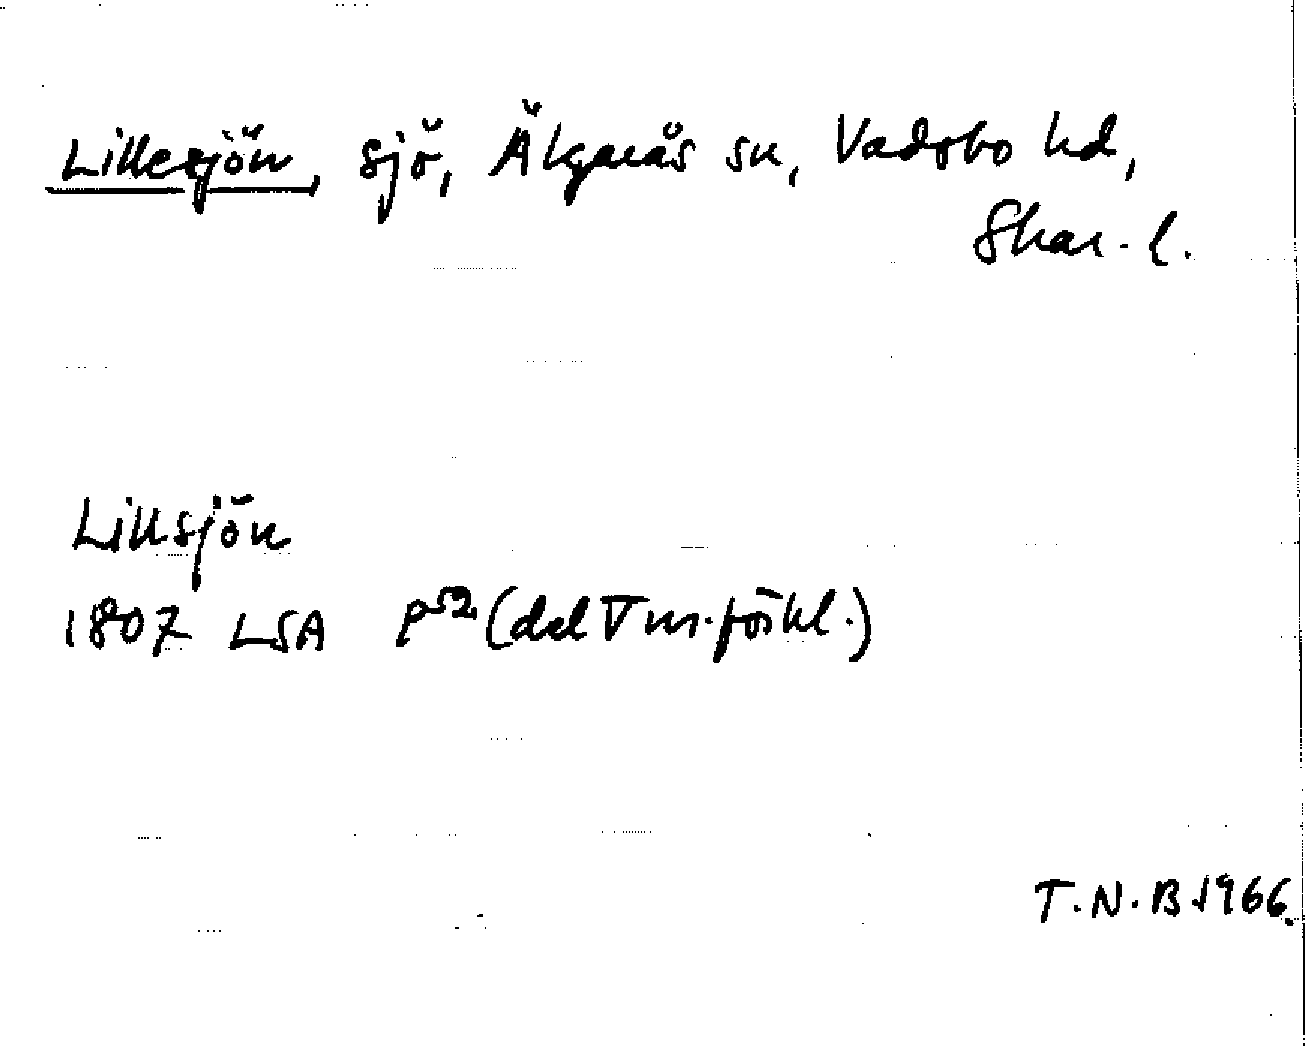 Lillesjön, sjö, Älgarås sn, Vadsbo hd,
Skar. l.
Lillsjön
1807 LSA P52 (del V ms. förkl.)
T.N.B. 1966.